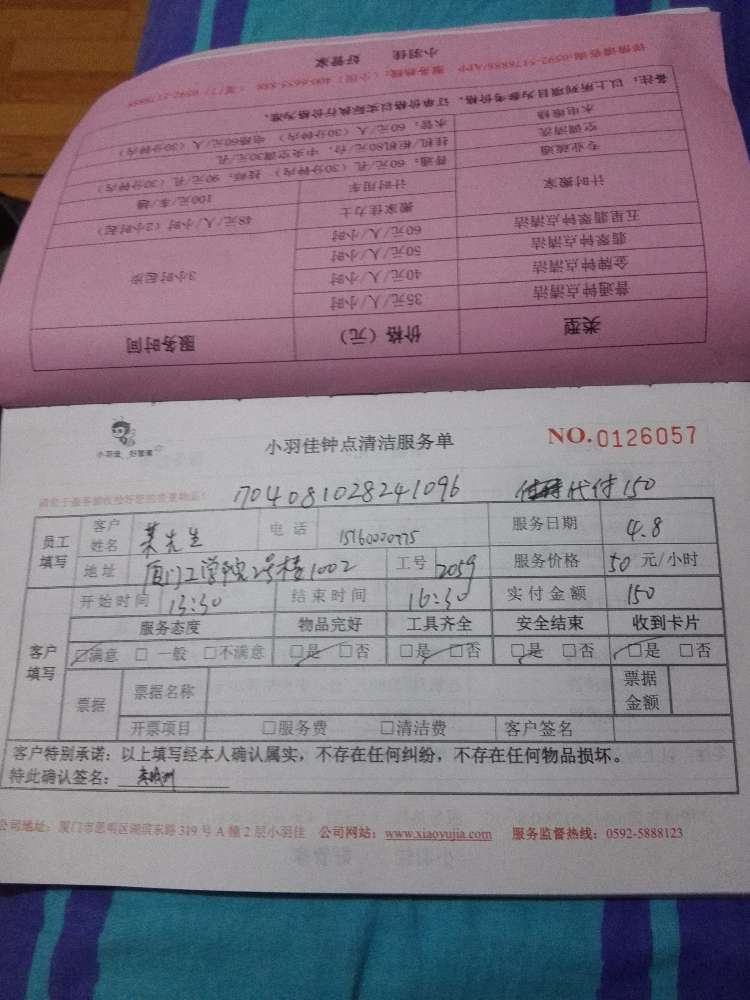 详情请咨询0592-5178888/APP 服务热线：(全国) 400-6655-858
小羽佳 好管家
备注：以上所列项目为参考价格，订单价格以实际执行价格为准。
水电维修 水管：60元/人 (30分钟内) 电路60元/人 (30分钟内)
空调清洗 挂机/柜机80元/台，中央空调30元/孔
专业疏通 普通：60元/孔 (30分钟内) 90元/孔 (30分钟内)
计时搬家 计时用车 100元/车/趟
搬家佳力士 48元/人/小时 (2小时起)
五星翡翠钟点清洁 60元/人/小时
翡翠钟点清洁 50元/人/小时
金牌钟点清洁 40元/人/小时
普通钟点清洁 35元/人/小时
3小时起步
类型 价格 (元) 服务时间
小羽佳 好管家
小羽佳钟点清洁服务单 NO.0126057
1704081028241096 代付150
员工填写 客户姓名 先生 电话 服务日期 4.8
地址 厦门工学院2号楼1002 工号 2059 服务价格 50 元/小时
开始时间 13:30 结束时间 16:30 实付金额 150
客户填写 服务态度 物品完好 工具齐全 安全结束 收到卡片
□满意 □一般 □不满意 □是 □否 □是 □否 □是 □否 □是 □否
票据 票据名称 票据金额
开票项目 □服务费 □清洁费 客户签名
客户特别承诺：以上填写经本人确认属实，不存在任何纠纷，不存在任何物品损坏。
特此确认签名：
公司地址：厦门市思明区湖滨东路319号A幢2层小羽佳 公司网站：www.xiaoyujia.com 服务监督热线：0592-5888123